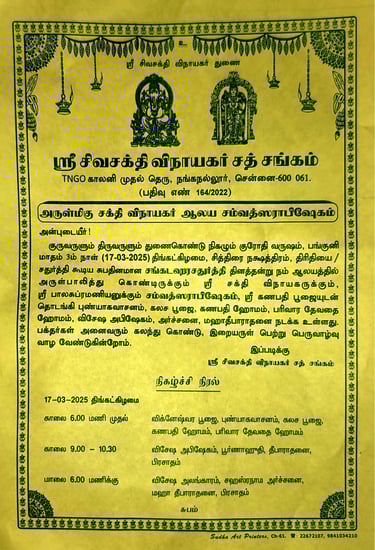 உ
ஸ்ரீ சிவசக்தி விநாயகர் துணை
ஸ்ரீ சிவசக்தி விநாயகர் சத் சங்கம்
TNGO காலனி முதல் தெரு, நங்கநல்லூர், சென்னை-600 061.
(பதிவு எண் 164/2022)
அருள்மிகு சக்தி விநாயகர் ஆலய சம்வத்ஸராபிஷேகம்
அன்புடையீர்!
குருவருளும் திருவருளும் துணைகொண்டு நிகழும் குரோதி வருஷம், பங்குனி
மாதம் 3ம் நாள் (17-03-2025) திங்கட்கிழமை, சித்திரை நக்ஷத்திரம், திரிதியை /
சதுர்த்தி கூடிய சுபதினமான சங்கடஹரசதுர்த்தி தினத்தன்று நம் ஆலயத்தில்
அருள்பாலித்து கொண்டிருக்கும் ஸ்ரீ சக்தி விநாயகருக்கும்,
ஸ்ரீ பாலசுப்ரமணியனுக்கும் சம்வத்ஸராபிஷேகம், ஸ்ரீ கணபதி பூஜையுடன்
தொடங்கி புண்யாகவாசனம், கலச பூஜை, கணபதி ஹோமம், பரிவார தேவதை
ஹோமம், விசேஷ அபிஷேகம், அர்ச்சனை, மஹாதீபாராதனை நடக்க உள்ளது.
பக்தர்கள் அனைவரும் கலந்து கொண்டு, இறையருள் பெற்று பெருவாழ்வு
வாழ வேண்டுகின்றோம்.
இப்படிக்கு
ஸ்ரீ சிவசக்தி விநாயகர் சத் சங்கம்
நிகழ்ச்சி நிரல்
17-03-2025 திங்கட்கிழமை
காலை 6.00 மணி முதல் விக்னேஷ்வர பூஜை, புண்யாகவாசனம், கலச பூஜை,
கணபதி ஹோமம், பரிவார தேவதை ஹோமம்
காலை 9.00 - 10.30 விசேஷ அபிஷேகம், பூர்ணாஹுதி, தீபாராதனை,
பிரசாதம்
மாலை 6.00 மணிக்கு விசேஷ அலங்காரம், சஹஸ்ரநாம அர்ச்சனை,
மஹா தீபாராதனை, பிரசாதம்
சுபம்
Sudha Art Printers, Ch-61. ☎ 22672107, 9841034210